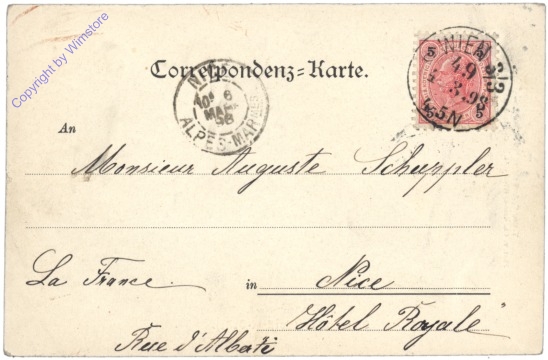 Copyright by Wimstore
Correspondenz=Karte.
WIEN 3/3
49
4.3.98
4-5N
5
5
NICE
10E 6
MARS
98
ALPES-MARMES
An
Monsieur Auguste Schuppler
La France. in Nice
Hôtel Royale"
Rue d'